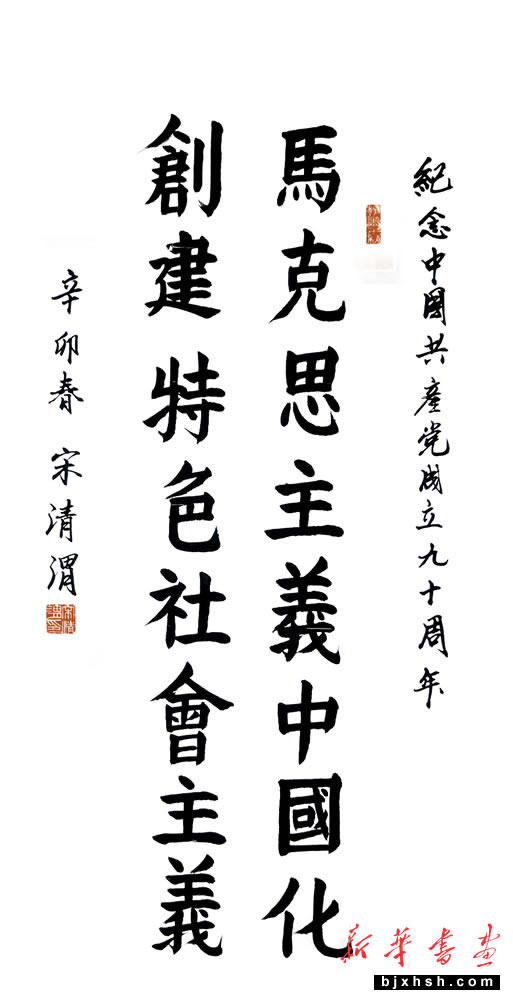 紀念中國共産党成立九十周年
馬克思主義中國化
創建特色社會主義
辛卯春 宋清渭
新華書画
bjxhsh.com